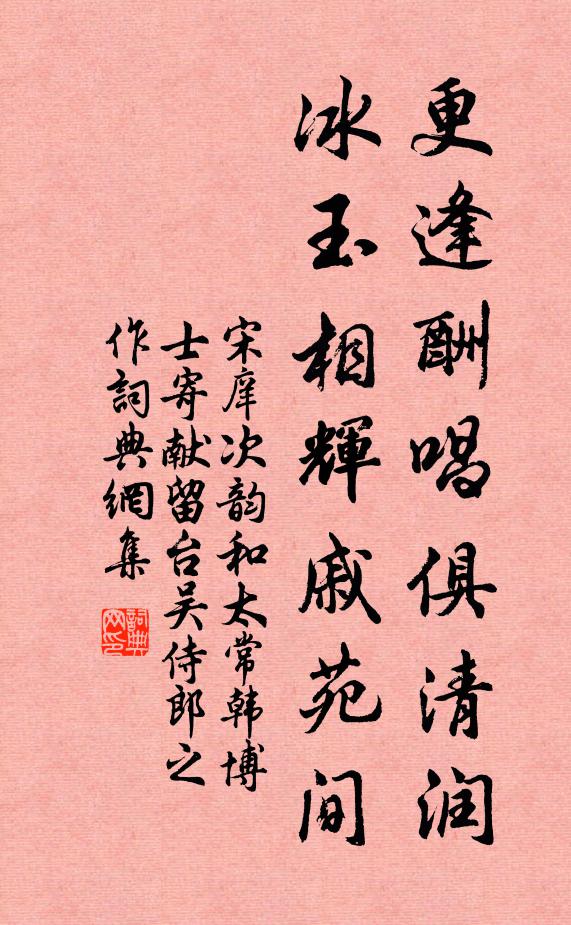 更逢酬唱俱清润
冰玉相輝戚苑间
宋庠次韵和太常韩博
士寄献留台吴侍郎之
作詞典網集
詞典
网印